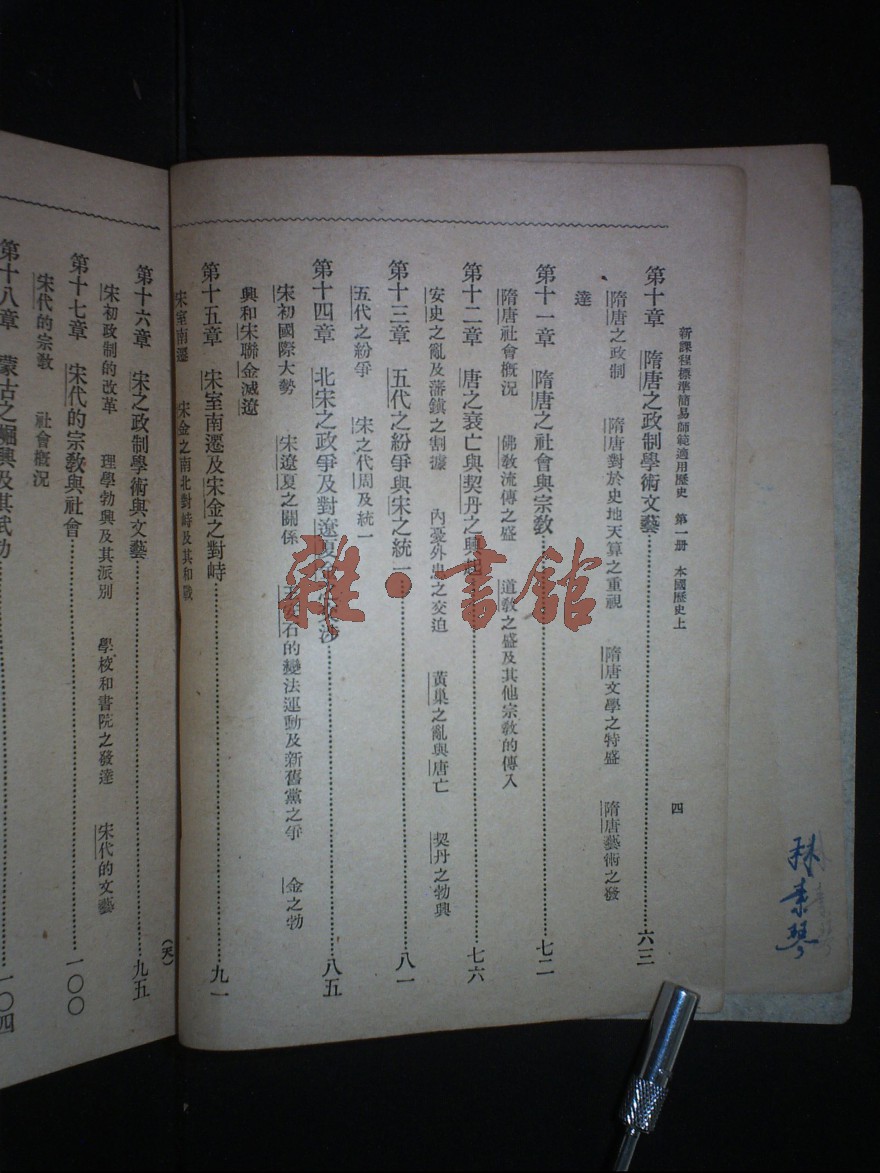 新課程標準簡易師範適用歷史 第一册 本國歷史上
四
第十章 隋唐之政制學術文藝……六三
隋唐之政制 隋唐對於史地天算之重視 隋唐文學之特盛 隋唐藝術之發
達
第十一章 隋唐之社會與宗教……七二
隋唐社會概況 佛教流傳之盛 道教之盛及其他宗教的傳入
第十二章 唐之衰亡與契丹之興起……七六
安史之亂及藩鎮之割據 內憂外患之交迫 黃巢之亂與唐亡 契丹之勃興
第十三章 五代之紛爭與宋之統一……八一
五代之紛爭 宋之代周及統一
第十四章 北宋之政爭及對遼夏金之交涉……八五
宋初國際大勢 宋遼夏之關係 王安石的變法運動及新舊黨之爭 金之勃
興和宋聯金滅遼
第十五章 宋室南遷及宋金之對峙……九一
宋室南遷 宋金之南北對峙及其和戰
(天)
第十六章 宋之政制學術與文藝……九五
宋初政制的改革 理學勃興及其派別 學校和書院之發達 宋代的文藝
第十七章 宋代的宗教與社會……一〇〇
宋代的宗教 社會概況
第十八章 蒙古之崛興及其武功……一〇四
林素琴
雜·書館